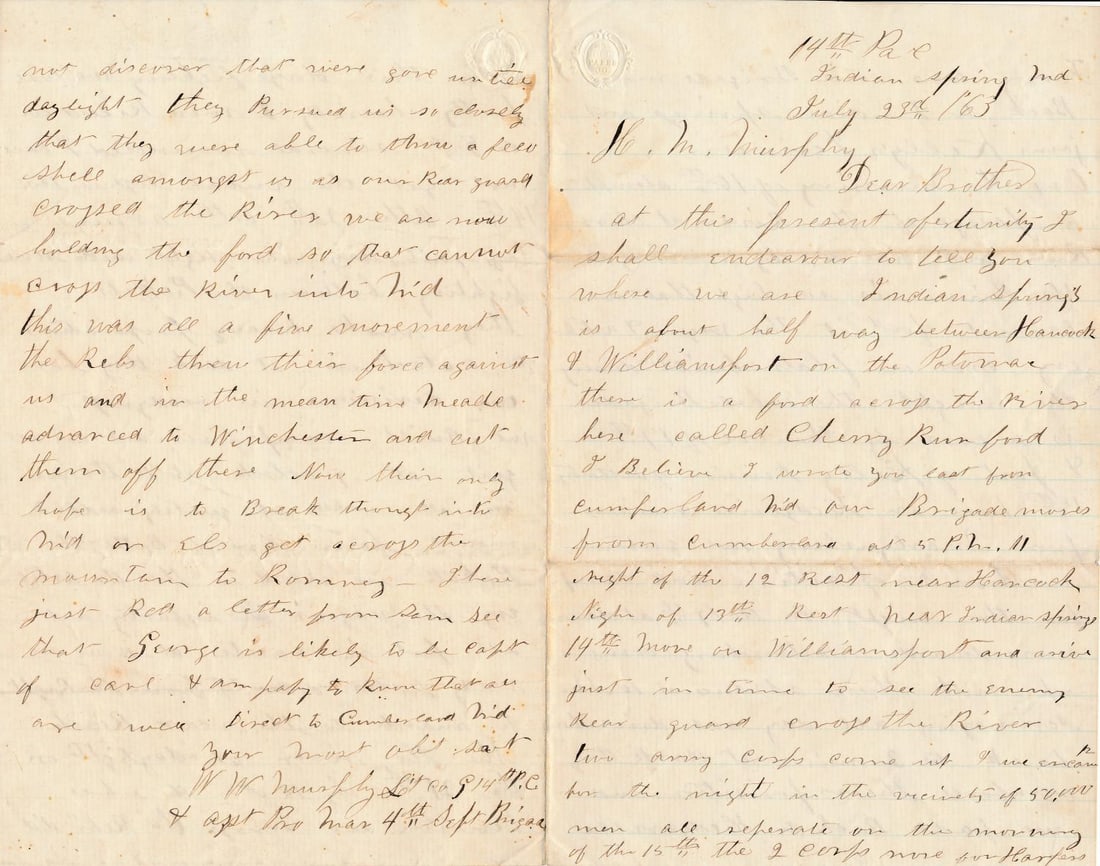 14th Pa C
Indian Spring Md
July 23rd /63
H. M. Murphy
Dear Brother
at this present ofertunity I
shall endeavour to tell you
where we are Indian Spring's
is about half way between Hancock
& Williamsport on the Potomac
there is a ford across the river
here called Cherry Run ford
I Believe I wrote you last from
cumberland Md our Brigade moves
from Cumberland at 5 P.M. 11
Night of the 12 Rest near Hancock
Night of 13th Rest near Indian springs
14th Move on Williamsport and arive
just in time to see the enemy
Rear guard cross the River
two army corps come up & we encamp
for the night in the vicinity of 50,000
men all seperate on the morning
of the 15th the 2 Corps move for Harpers
not discover that were gone untill
daylight they Pursued us so closely
that they were able to throw a few
shell amongst us as our Rear guard
crossed the River we are now
holding the ford so that cannot
cross the River into Md
this was all a fine movement
the Rebs threw their force against
us and in the mean time Meade
advanced to Winchester and cut
them off there Now their only
hope is to Break thought into
Md or Els get across the
mountain to Romney – I have
just Recd a letter from Sam see
that George is likely to be Capt
of cavl. & am hapy to know that all
are well Direct to Cumberland Md
your most obt. savt
W W Murphy Lt Co G 14th P.C
& asst Pro Mar 4th Sept Brigade